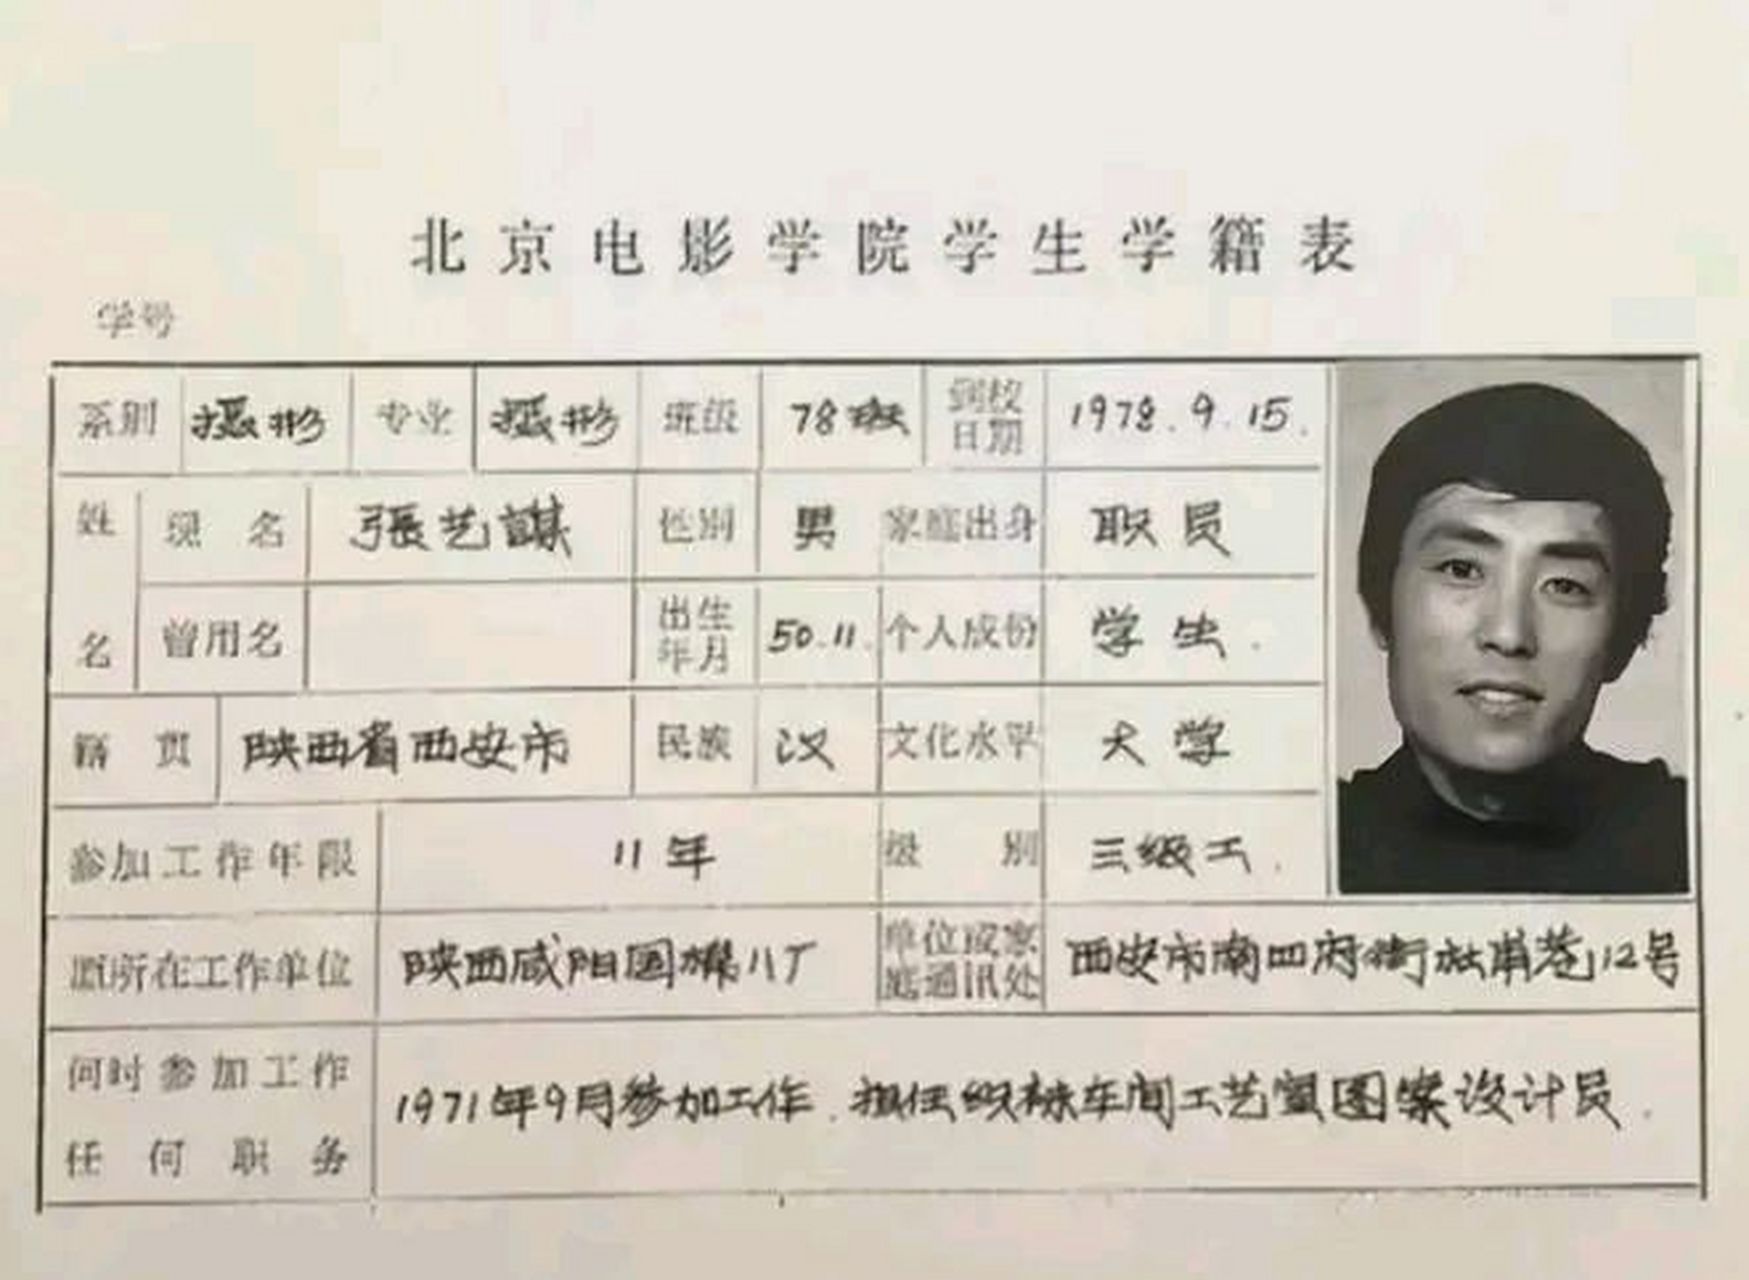 北京电影学院学生学籍表
学号
系别 摄影 专业 摄影 班级 78班 到校日期 1978.9.15.
姓名 现名 張艺謀 性别 男 家庭出身 职员
曾用名 出生年月 50.11. 个人成份 学生.
籍贯 陕西省西安市 民族 汉 文化水平 大学
参加工作年限 11年 级别 三级工.
原所在工作单位 陕西咸阳国棉八厂 单位或家庭通讯处 西安市南四府街社甫巷12号
何时参加工作任何职务 1971年9月参加工作.担任织袜车间工艺室图案设计员.